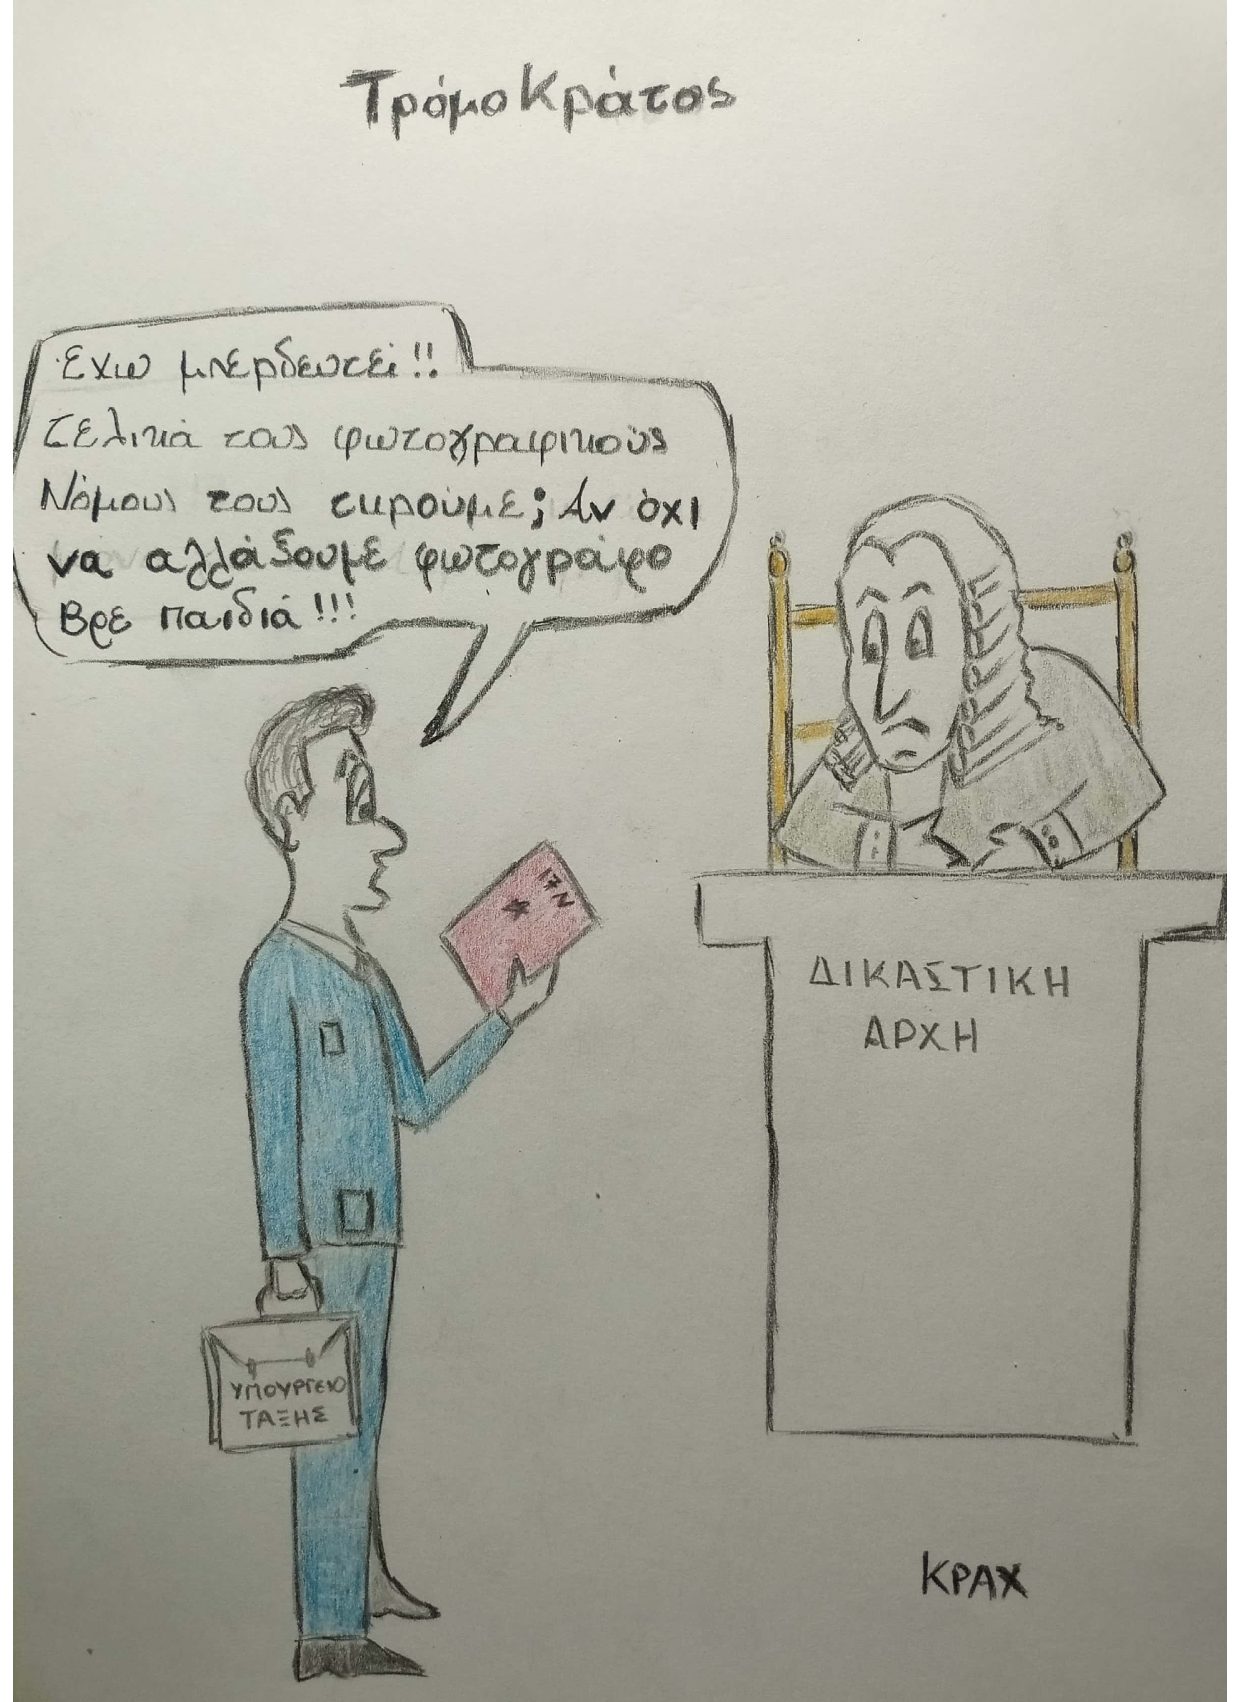 ΤρόμοΚράτος
Έχω μπερδευτεί!!
τελικά τους φωτογραφικούς
Νόμους τους τηρούμε; Αν όχι
να αλλάξουμε φωτογράφο
Βρε παιδιά!!!
17Ν
ΔΙΚΑΣΤΙΚΗ
ΑΡΧΗ
ΥΠΟΥΡΓΕΙΟ
ΤΑΞΗΣ
ΚΡΑΧ